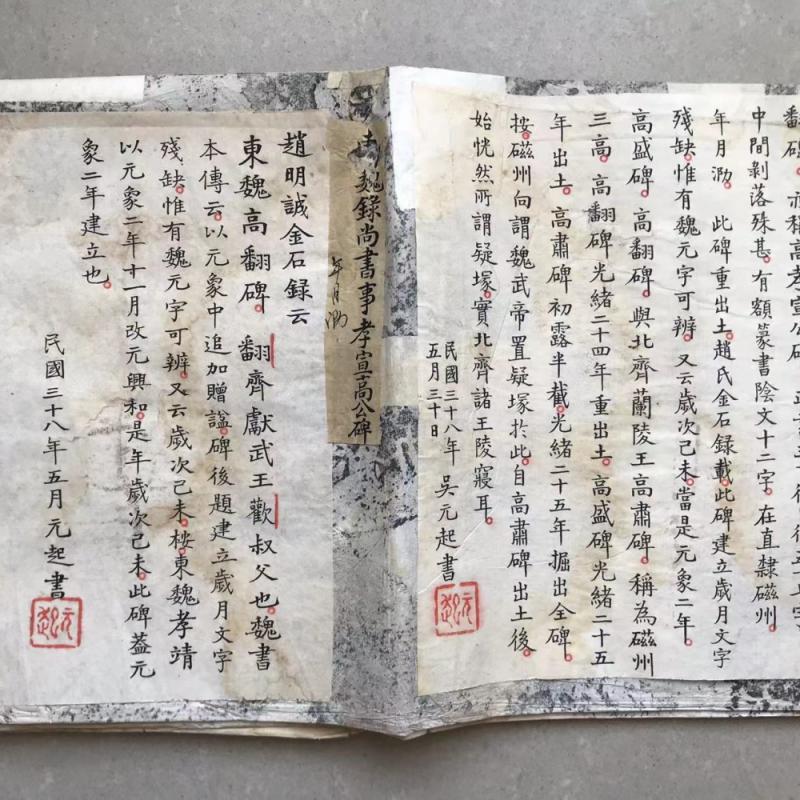 翻碑亦稱高孝宣公碑
中間剝落殊甚有額篆書陰文十二字在直隸磁州
年月泐 此碑重出土趙氏金石録載此碑建立歲月文字
殘缺惟有魏元字可辨又云歲次己未當是元象二年
高盛碑高翻碑與北齊蘭陵王高肅碑稱為磁州
三高高翻碑光緒二十四年重出土高盛碑光緒二十五
年出土高肅碑初露半截光緒二十五年掘出全碑
按磁州向謂魏武帝置疑塚於此自高肅碑出土後
始恍然所謂疑塚實北齊諸王陵寢耳
民國三十八年 吳元起書
五月三十日
魏錄尚書事孝宣高公碑
年月泐
趙明誠金石録云
東魏高翻碑 翻齊獻武王歡叔父也魏書
本傳云以元象中追加贈謚碑後題建立歲月文字
殘缺惟有魏元字可辨又云歲次己未桉東魏孝靖
以元象二年十一月改元興和是年歲次己未此碑蓋元
象二年建立也
民國三十八年五月元起書
元起